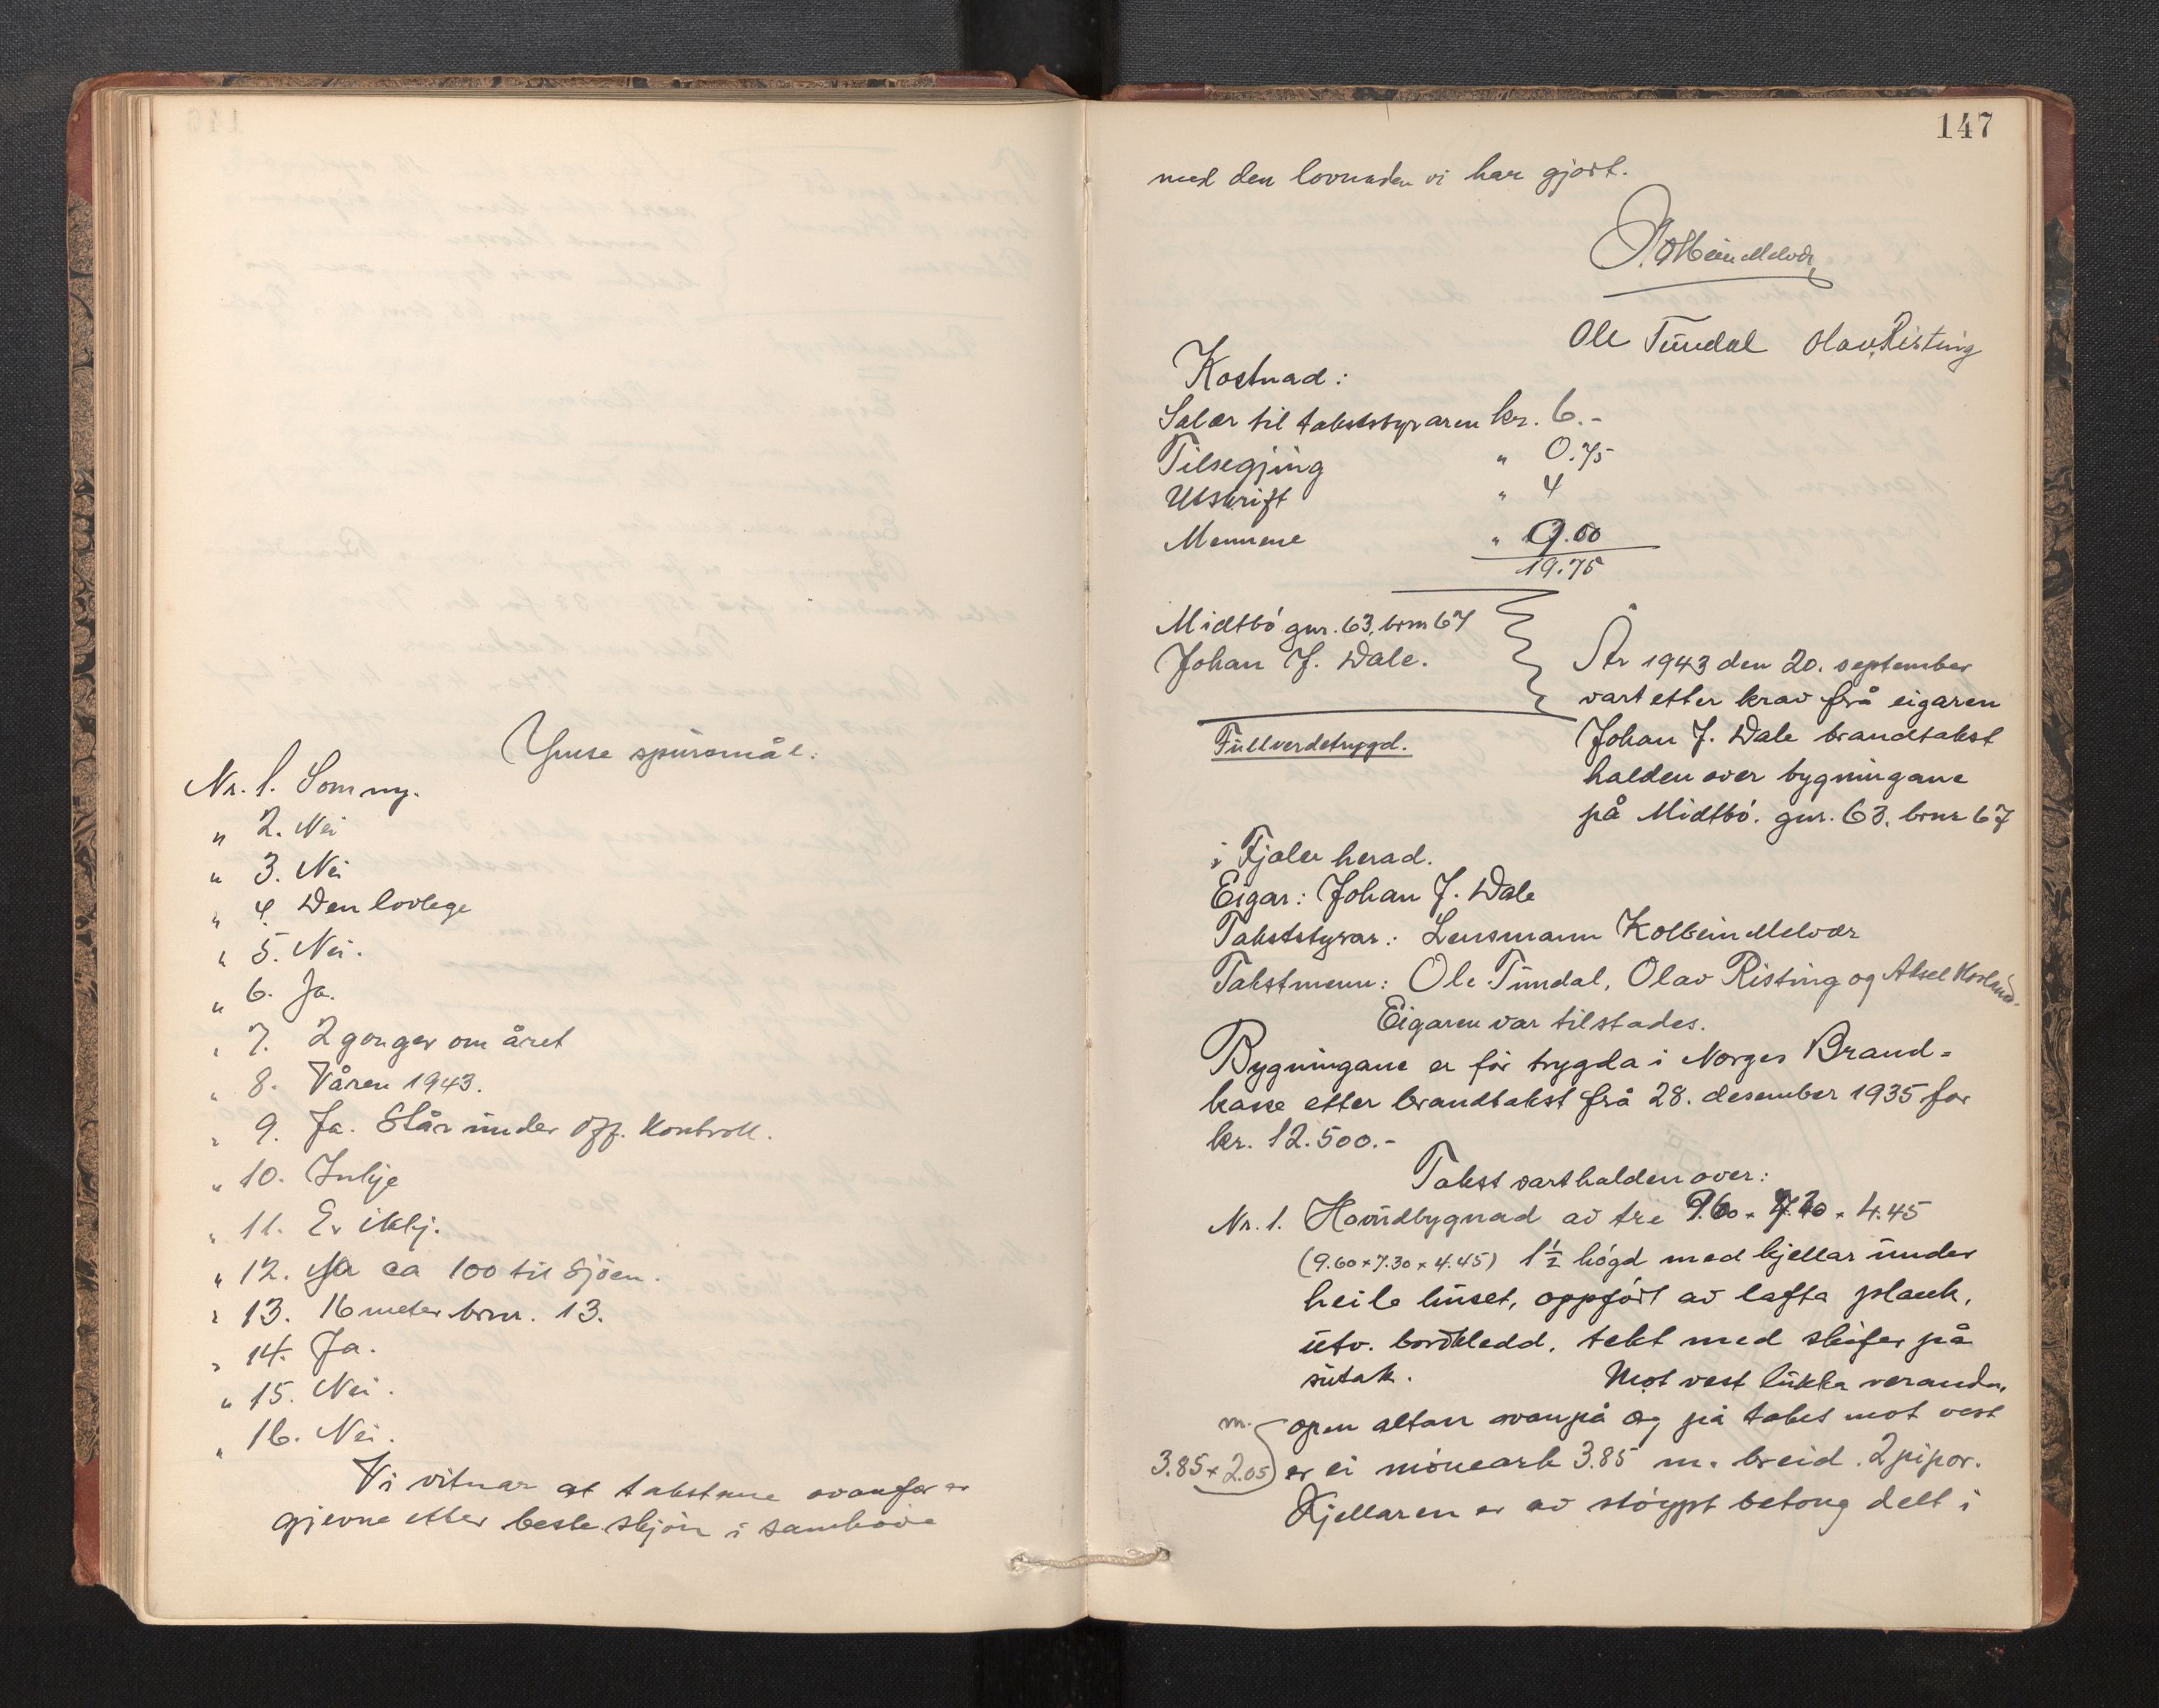 Ymse spursmål:
Nr. 1. Som ny.
" 2. Nei
" 3. Nei
" 4. Den lovlege
" 5. Nei.
" 6. Ja.
" 7. 2 gonger om året
" 8. Våren 1943.
" 9. Ja. Står under off. kontroll.
" 10. Inkje
" 11. Er ikkj.
" 12. Ja ca 100 til Sjöen.
" 13. 16 meter brnr. 13.
" 14. Ja.
" 15. Nei.
" 16. Nei.
Vi vitnar at takstane ovanfor er
gjevne etter beste skjön i samhöve
147
med den lovnaden vi har gjort.
Kolbein Melvær
Ole Tundal Olav Risting
Kostnad:
Salær til takststyraren kr. 6.-
Tilsegjing " 0.75
Utskrift " 4
Mennene " 9.00
19.75
Midtbö gnr. 63, brnr 67
Johan J. Dale.
Fullverdetrygd.
År 1943 den 20. september
vart etter krav frå eigaren
Johan J. Dale brandtakst
halden over bygningane
på Midtbö. gnr. 63. brnr 67
i Fjaler herad.
Eigar: Johan J. Dale
Takststyrar: Lensmann Kolbein Melvær
Takstmenn: Ole Tundal, Olav Risting og Aksel
Eigaren var tilstades.
Bygningane er för trygda i Norges Brand-
kasse etter brandtakst frå 28. desember 1935 for
kr. 12.500.-
Takst vart halden over:
Nr. 1. Hovudbygnad av tre 9.60 × 7.30 × 4.45
(9.60 × 7.30 × 4.45) 1½ högd med kjellar under
heile huset, oppfört av lafta plank,
utv. bordkledd, tekt med skifer på
sutak. Mot vest lukka veranda,
open altan ovanpå og på taket mot vest
m.
3.85 × 2.05
er ei möneark 3.85 m. breid. 2 pipor.
Kjellaren er av stöypt betong delt i